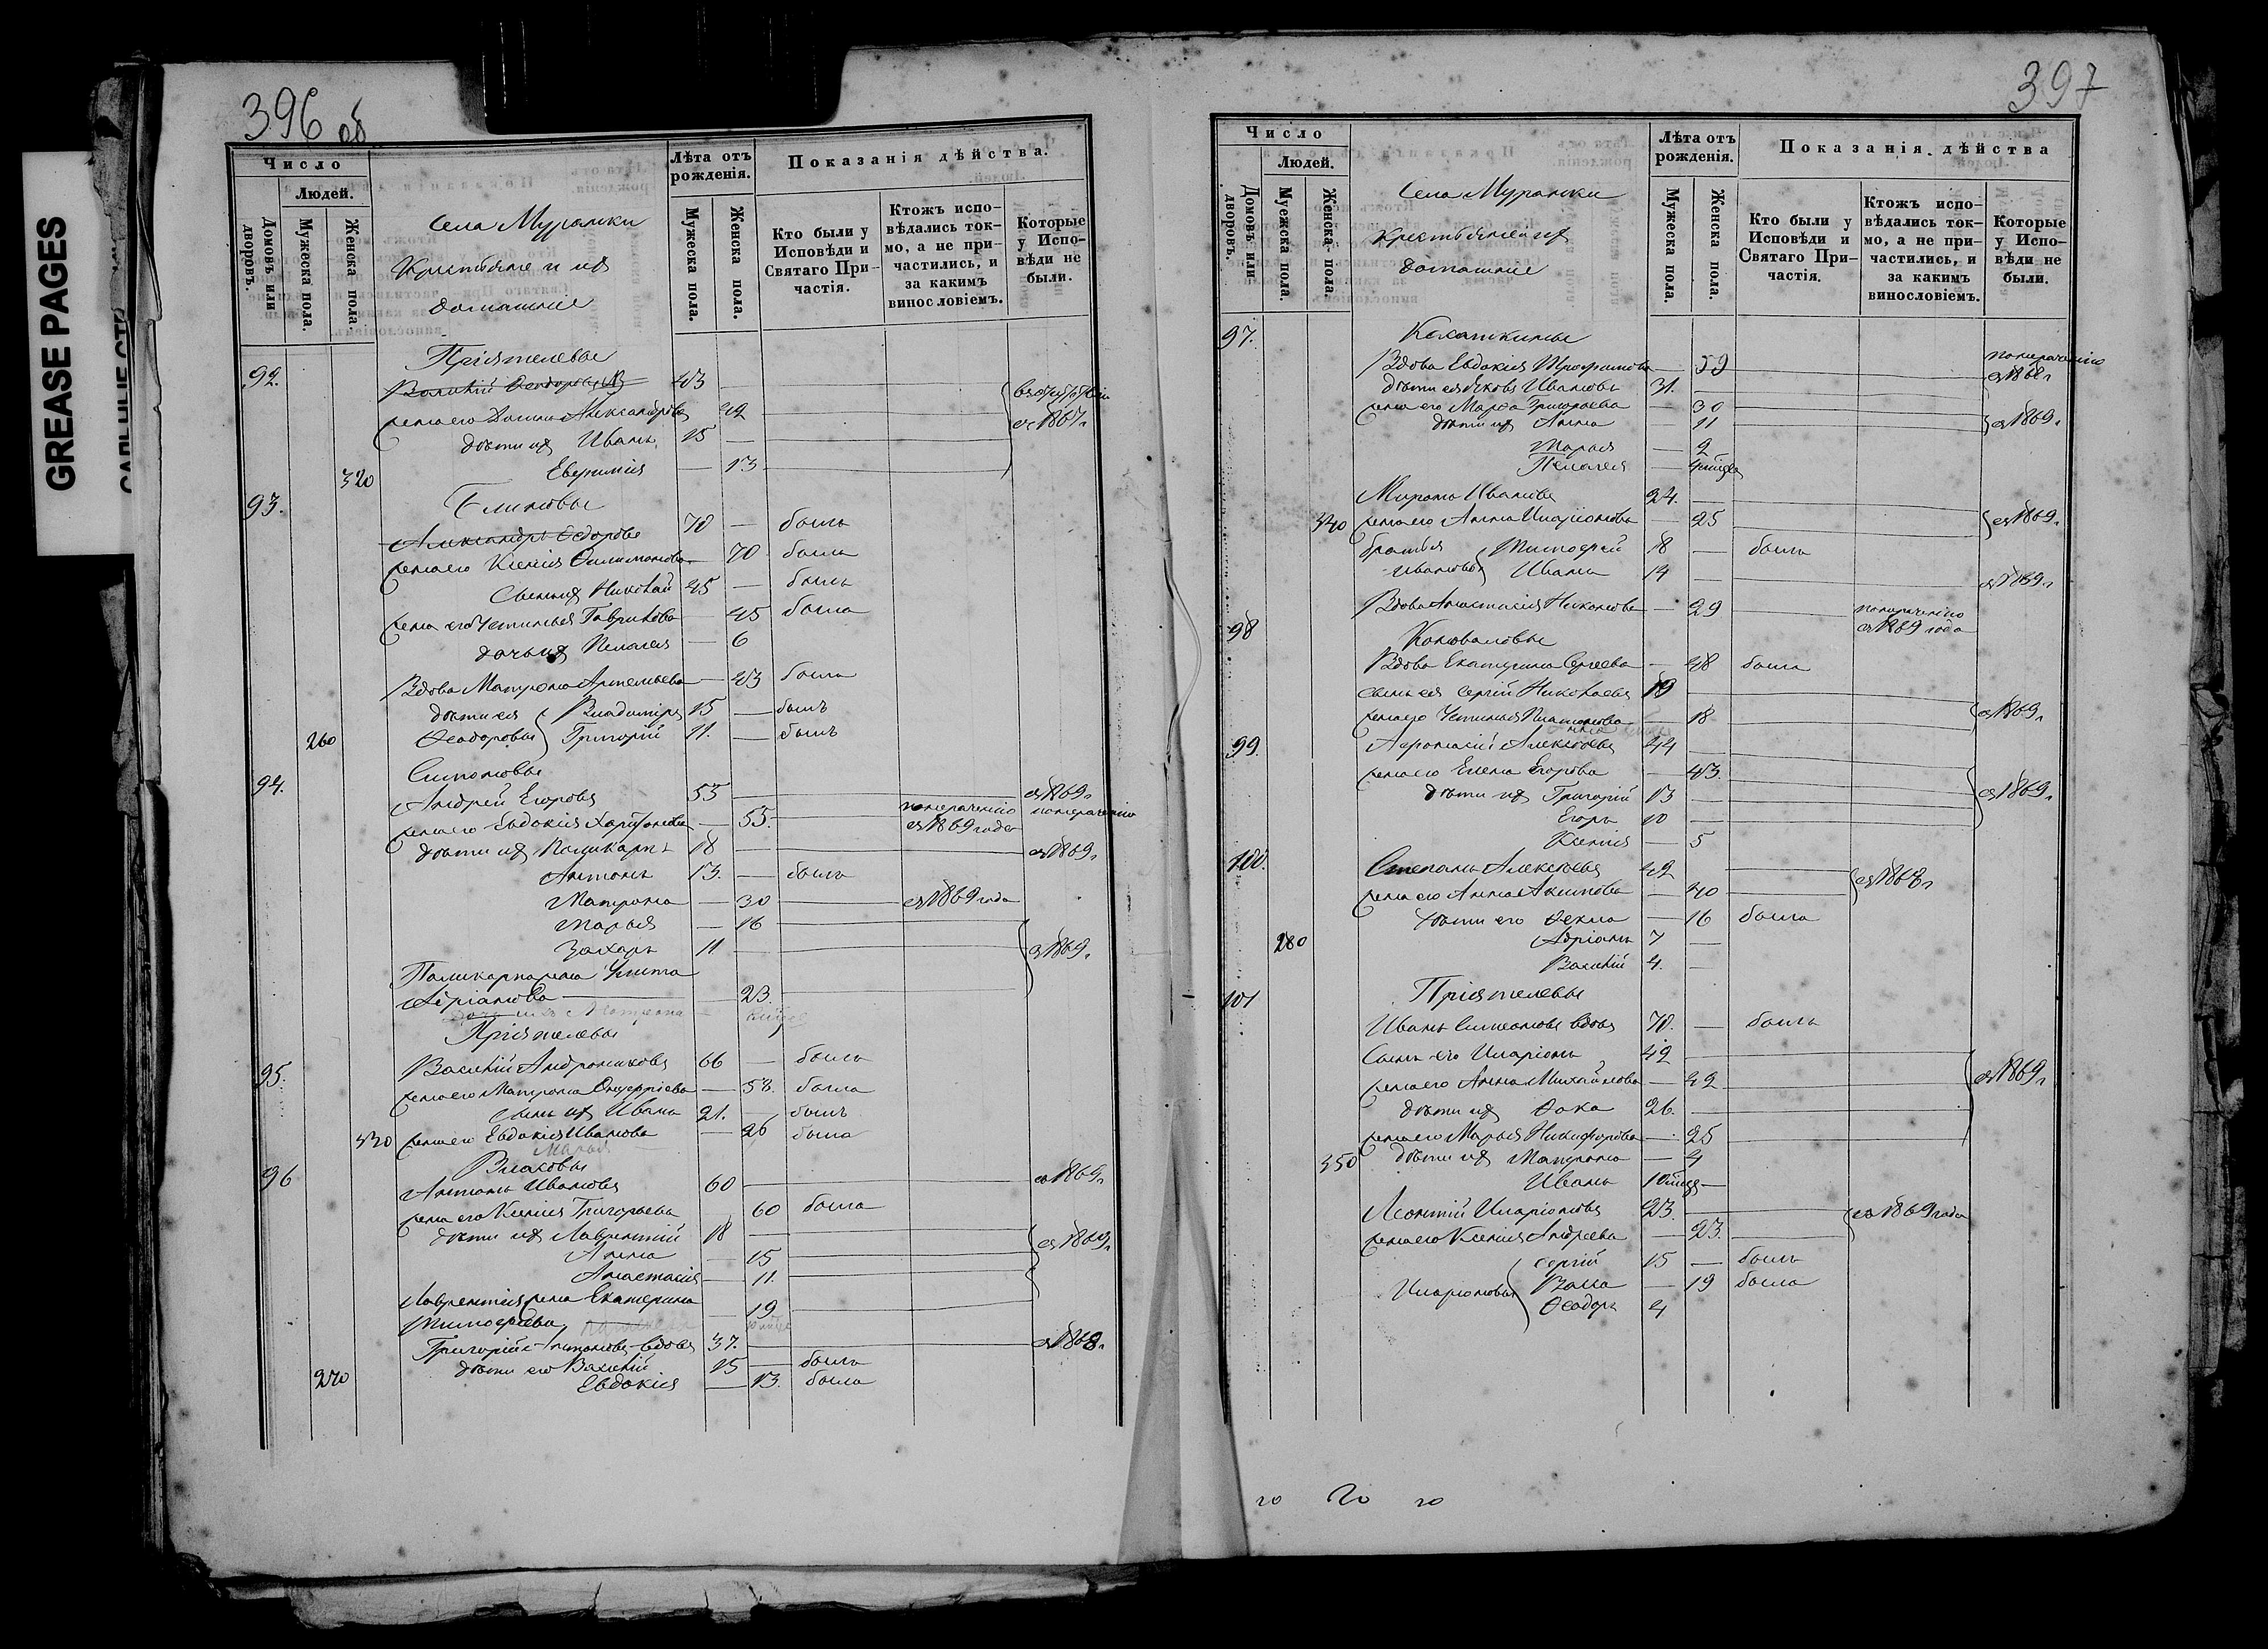 GREASE PAGES
396 об
Число
Людей.
Домовъ или дворовъ.
Мужеска пола.
Женска пола.
Села Муранки
Крестьяне и ихъ
домашніе
Лѣта отъ рожденія.
Мужеска пола.
Женска пола.
Показанія дѣйства.
Кто были у Исповѣди и Святаго Причастія.
Ктожъ исповѣдались токмо, а не причастились, и за какимъ винословіемъ.
Которые у Исповѣди не были.
Пріятелевы
92. Василій Ѳеодоровъ 43
жена его Александрова 42 съ 1867 г
дѣти ихъ Иванъ 15
320 Евфимія 13
93. Блиновы
Александръ Ѳедоровъ 70 былъ
жена его Ксенія Филимонова 70 была
Сынъ ихъ Николай 45 былъ
жена его Устинья Гаврилова 45 была
дочь ихъ Пелагея 6
Вдова Матрона Артемьева 43 была
дѣти ея Владиміръ 15 былъ
260 Ѳеодоровы Григорій 11. былъ
94. Симоновы
Андрей Егоровъ 55 съ 1869 г
жена его Евдокія Харитонова 55. съ 1869 года
дѣти ихъ Поликарпъ 18 съ 1869 г
Антонъ 13. былъ
Матрона 30 съ 1869 года
Марья 16
Захаръ 11 съ 1869 г
Поликарпа жена Улита
Адріанова 23.
Пріятелевы
95. Василій Андрониковъ 66 былъ
жена его Матрона Онуфріева 58. была
сынъ ихъ Иванъ 21. былъ
330 жена его Евдокія Иванова 26 была
Марья
Власовы
96 Антонъ Ивановъ 60 съ 1869 г
жена его Ксенія Григорьева 60 была
дѣти ихъ Лаврентій 18
Анна 15 съ 1869 г
Анастасія 11.
Лаврентія жена Екатерина
Тимофеева 19
Григорій Антоновъ вдовъ 37. съ 1868 г
дѣти его Василій 15 былъ
270 Евдокія 13. была
397
Число
Людей.
Домовъ или дворовъ.
Мужеска пола.
Женска пола.
Села Муранки
Крестьяне и ихъ
домашніе
Лѣта отъ рожденія.
Мужеска пола.
Женска пола.
Показанія дѣйства
Кто были у Исповѣди и Святаго Причастія.
Ктожъ исповѣдались токмо, а не причастились, и за какимъ винословіемъ.
Которые у Исповѣди не были.
97.
Вдова Евдокія Трофимова 59 съ 1868 г
дѣти ея Яковъ Ивановъ 31.
жена его Марѳа Григорьева 30
дѣти ихъ Анна 11 съ 1869 г
Марья 2
Пелагея
Миронъ Ивановъ 24.
340 жена его Анна Иларіонова 25 съ 1869 г
братья Тимофей 18 былъ
Ивановы Иванъ 14 съ 1869 г
Вдова Анастасія Никонова 29 съ 1869 года
98 Коноваловы
Вдова Екатерина Сергеева 48 была
сынъ ея Сергій Николаевъ 18
жена его Устинья Платонова 18 съ 1869 г
99. Афонасій Алексѣевъ 44
жена его Елена Егорова 43.
дѣти ихъ Григорій 13 съ 1869 г
Егоръ 10
Ксенія 5
100. Степанъ Алексѣевъ 42 съ 1868 г
жена его Анна Акимова 40
дѣти его Ѳекла 16 была
280 Адріанъ 7
Василій 4.
101 Пріятелевы
Иванъ Симеоновъ вдовъ 70. былъ
Сынъ его Иларіонъ 42
жена его Анна Михайлова 42 съ 1869 г
дѣти ихъ Фока 26.
жена его Марья Никифорова 25
350 дѣти ихъ Матрона 4
Иванъ
Леонтій Иларіоновъ 23. съ 1869 года
жена его Ксенія Андреева 23.
Сергій 15 былъ
Иларіоновы Васса 19 была
Ѳеодоръ 4